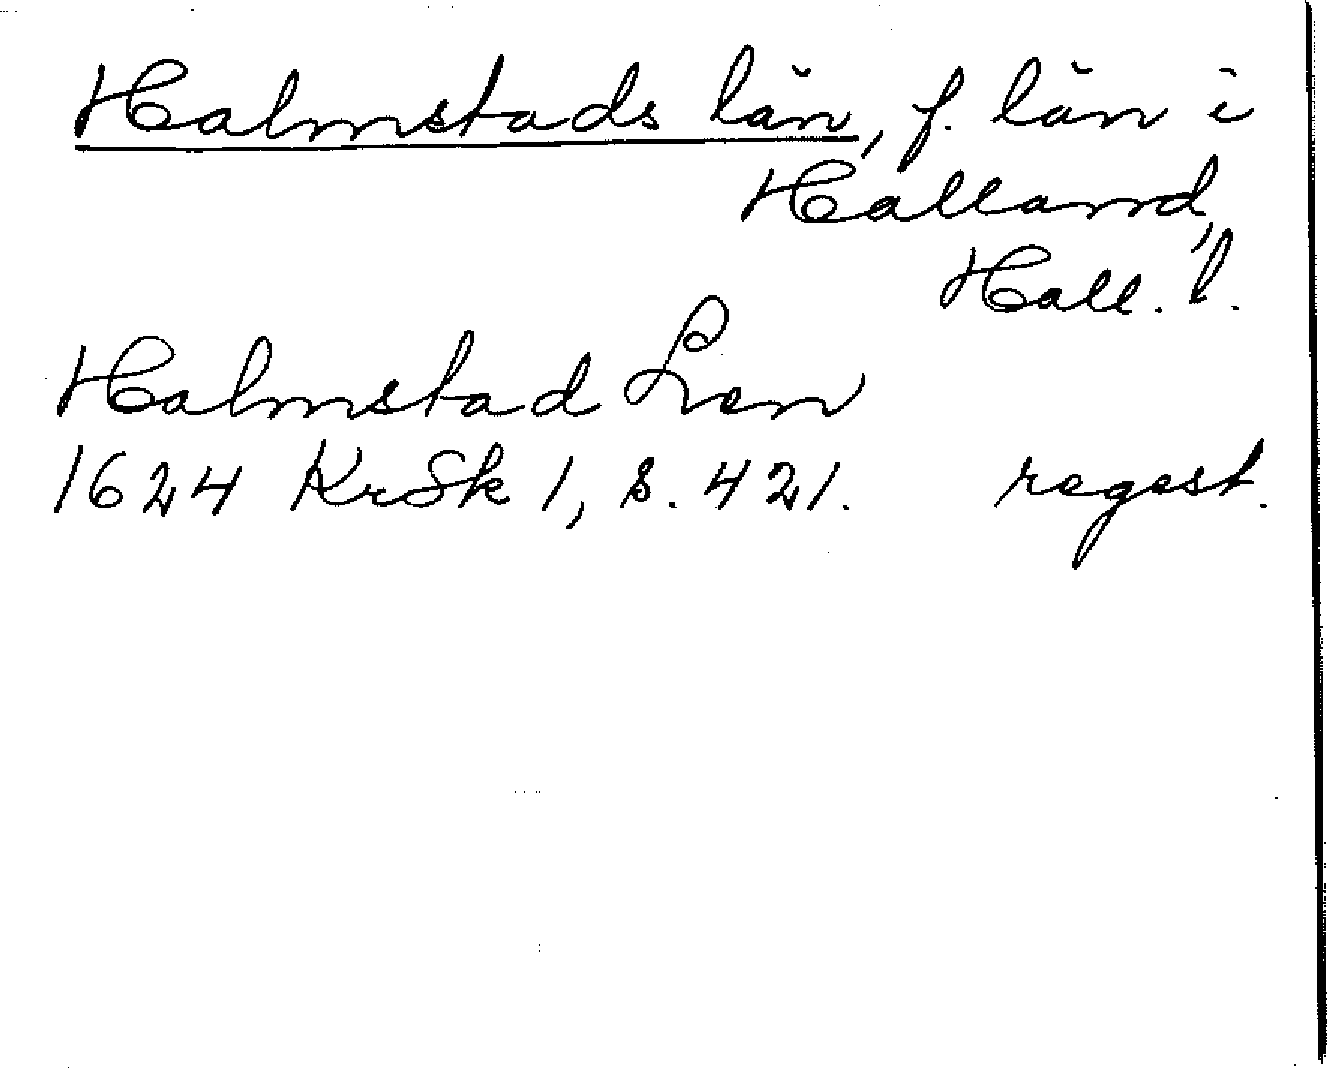 Halmstads län, f. län i
Halland,
Hall. l.
Halmstad Len
1624 KrSk 1, s. 421. regest.